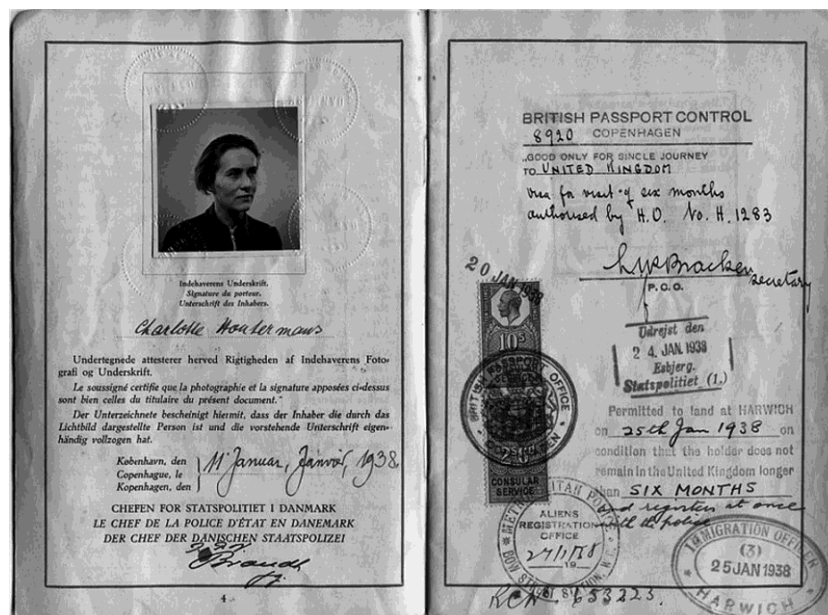 Indehaverens Underskrift.
Signature du porteur.
Unterschrift des Inhabers.
Charlotte Houtermans
Undertegnede attesterer herved Rigtigheden af Indehaverens Foto-
grafi og Underskrift.
Le soussigné certifie que la photographie et la signature apposées ci-dessus
sont bien celles du titulaire du présent document.
Der Unterzeichnete bescheinigt hiermit, dass der Inhaber die durch das
Lichtbild dargestellte Person ist und die vorstehende Unterschrift eigen-
händig vollzogen hat.
København, den
Copenhague, le
Kopenhagen, den
11' Januar, Janvier, 1938
CHEFEN FOR STATSPOLITIET I DANMARK
LE CHEF DE LA POLICE D'ÉTAT EN DANEMARK
DER CHEF DER DÄNISCHEN STAATSPOLIZEI
4
BRITISH PASSPORT CONTROL
8920 COPENHAGEN
GOOD ONLY FOR SINGLE JOURNEY
TO UNITED KINGDOM
Visa for visit of six months
authorised by H.O. No. H. 1283
secretary
P.C.O.
20 JAN 1938
10s
BRITISH PASSPORT OFFICE
COPENHAGEN
CONSULAR
SERVICE
Udrejst den
24. JAN. 1938
Esbjerg.
Statspolitiet (1.)
Permitted to land at HARWICH
on 25th Jan 1938 on
condition that the holder does not
remain in the United Kingdom longer
than SIX MONTHS
and registers at once
with the police
METROPOLITAN POLICE
ALIENS
REGISTRATION
OFFICE
27/1/38
19
BOW STREET STATION, W.C.
IMMIGRATION OFFICER
(3)
25 JAN 1938
HARWICH
653223